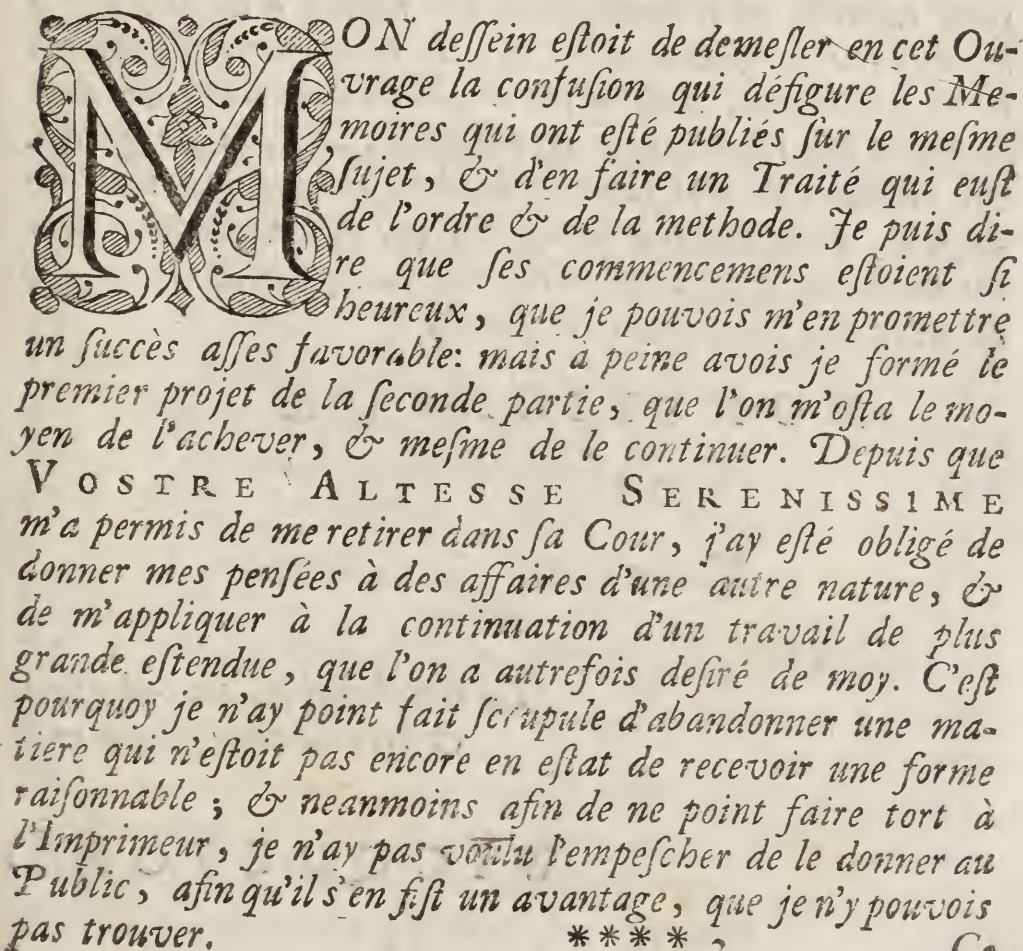 MON deſſein eſtoit de demeſler en cet Ou-
vrage la confuſion qui défigure les Me-
moires qui ont eſté publiés ſur le meſme
ſujet, & d'en faire un Traité qui euſt
de l'ordre & de la methode. Je puis di-
re que ſes commencemens eſtoient ſi
heureux, que je pouvois m'en promettre
un ſuccès aſſes favorable: mais à peine avois je formé le
premier projet de la ſeconde partie, que l'on m'oſta le mo-
yen de l'achever, & meſme de le continuer. Depuis que
VOSTRE ALTESSE SERENISSIME
m'a permis de me retirer dans ſa Cour, j'ay eſté obligé de
donner mes penſées à des affaires d'une autre nature, &
de m'appliquer à la continuation d'un travail de plus
grande eſtendue, que l'on a autrefois deſiré de moy. C'eſt
pourquoy je n'ay point fait ſcrupule d'abandonner une ma-
tiere qui n'eſtoit pas encore en eſtat de recevoir une forme
raiſonnable; & neanmoins afin de ne point faire tort à
l'Imprimeur, je n'ay pas voulu l'empeſcher de le donner au
Public, afin qu'il s'en fiſt un avantage, que je n'y pouvois
pas trouver.
**** 2 Ce